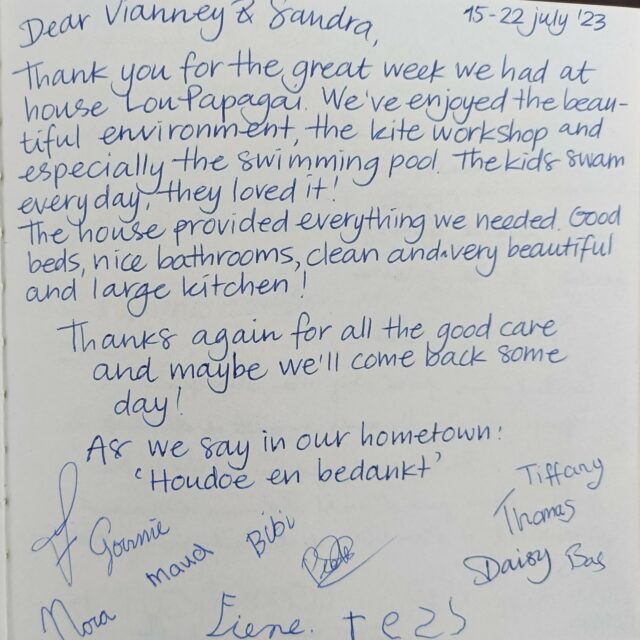 Dear Vianney & Sandra,
15-22 july '23
Thank you for the great week we had at
house LouPapagai. We've enjoyed the beau-
tiful environment, the kite workshop and
especially the swimming pool. The kids swam
everyday, they loved it!
The house provided everything we needed. Good
beds, nice bathrooms, clean and very beautiful
and large kitchen!
Thanks again for all the good care
and maybe we'll come back some
day!
As we say in our hometown:
'Houdoe en bedankt'
Tiffany
Thomas
Daisy Bas
Maud
Bibi
Nora